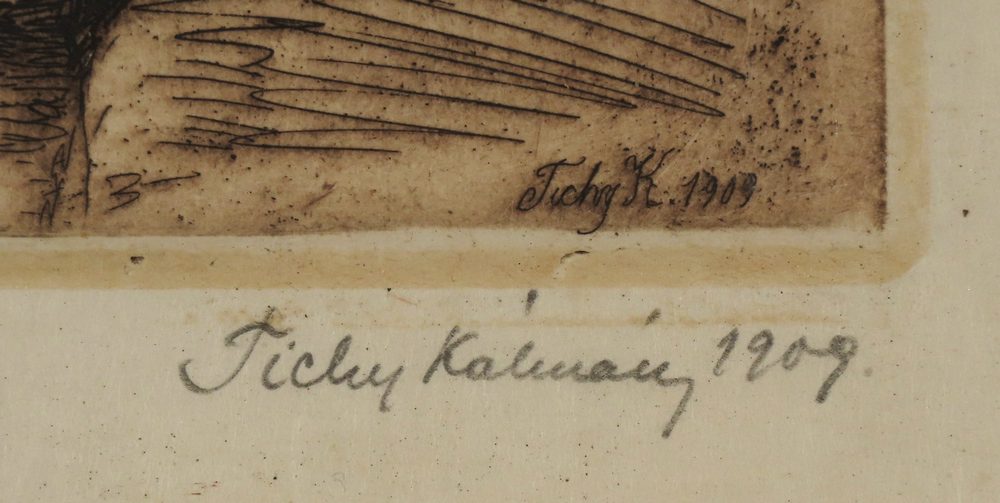 Tichy K. 1909
Tichy Kálmán 1909.